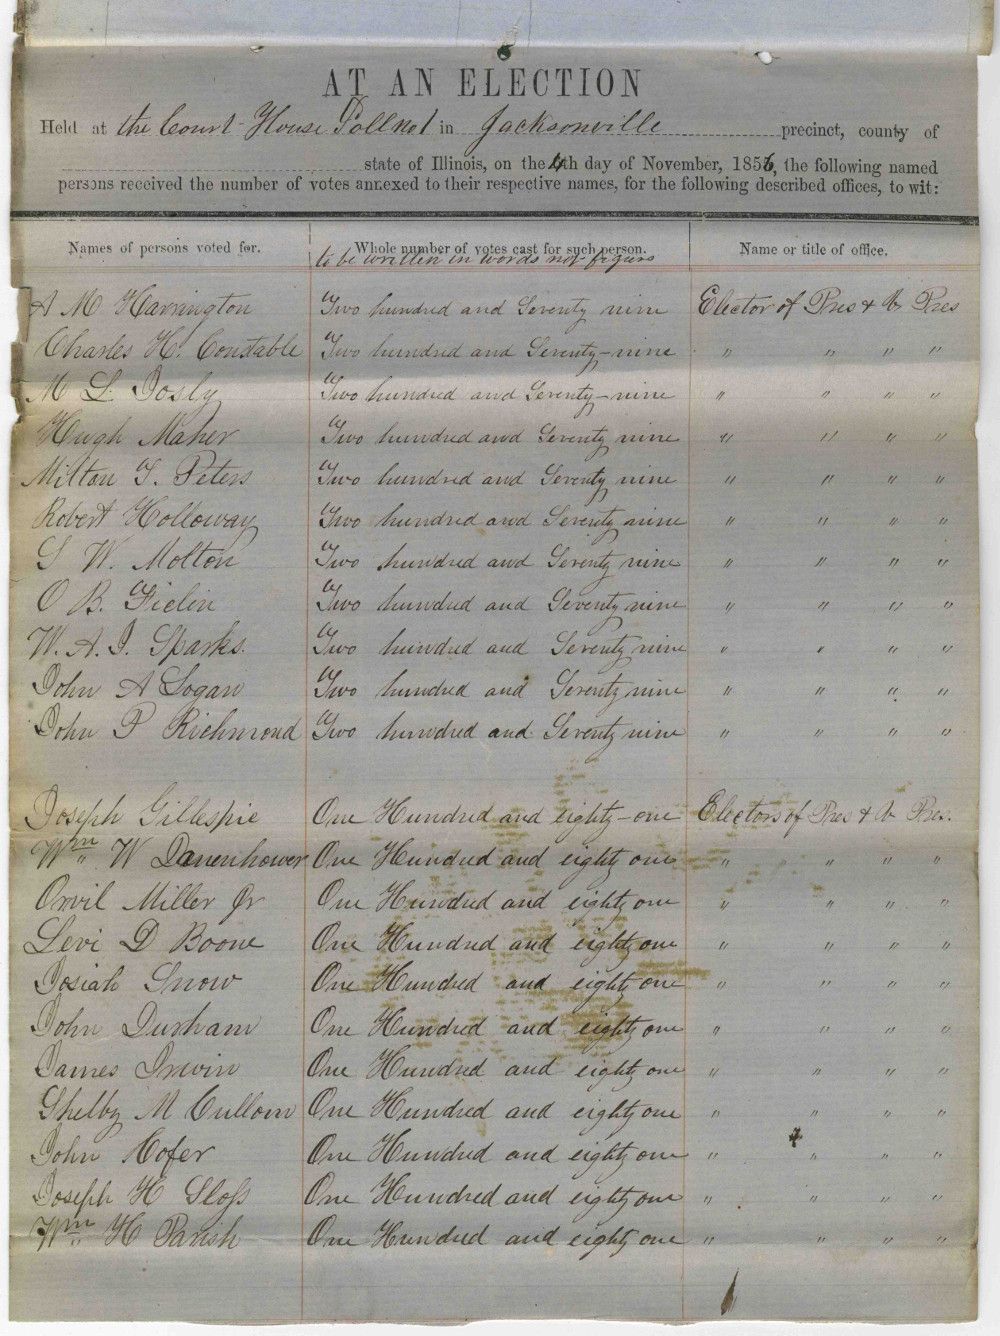 AT AN ELECTION
Held at the Court House Poll no 1 in Jacksonville precinct, county of
state of Illinois, on the 4th day of November, 1856, the following named
persons received the number of votes annexed to their respective names, for the following described offices, to wit:
Names of persons voted for. Whole number of votes cast for such person. Name or title of office.
to be written in words not figurs
A M Harrington Two hundred and Seventy nine Elector of Pres & V Pres
Charles H. Constable Two hundred and Seventy-nine " " " "
M L Josly Two hundred and Seventy-nine " " " "
Hugh Maher Two hundred and Seventy nine " " " "
Milton T. Peters Two hundred and Seventy nine " " " "
Robert Holloway Two hundred and Seventy nine " " " "
S W. Molton Two hundred and Seventy nine " " " "
O B. Ficlin Two hundred and Seventy nine " " " "
W. A. J. Sparks. Two hundred and Seventy nine " " " "
John A Logan Two hundred and Seventy nine " " " "
John P Richmond Two hundred and Seventy nine " " " "
Joseph Gillespie One Hundred and eighty-one Electors of Pres & V Pres.
Wm W Danenhower One Hundred and eighty one " " " "
Orvil Miller Jr One Hundred and eighty one " " " "
Levi D Boone One Hundred and eighty one " " " "
Josiah Snow One Hundred and eighty one " " " "
John Durham One Hundred and eighty one " " " "
James Irwin One Hundred and eighty one " " " "
Shelby M Cullom One Hundred and eighty one " " " "
John Hofer One Hundred and eighty one " " " "
Joseph H Sloss One Hundred and eighty one " " " "
Wm H Parish One Hundred and eighty one " " " "